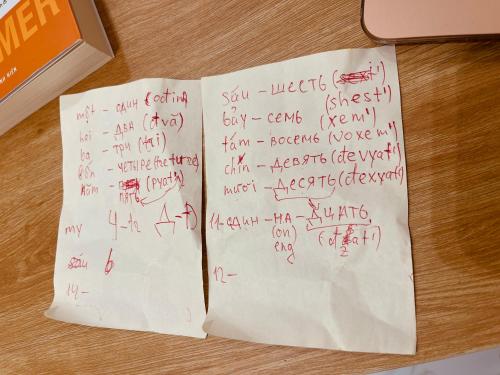 MER
một - один (ođin
hai - ДВА (đvă)
ba - ТРИ (tri)
bốn - ЧЕТЫРЕ
năm - ПЯТЬ (pyat')
my 4 - ta Д - Д
sáu 6
14 -
sáu - ШЕСТЬ
(shest')
bảy - СЕМЬ (xem')
tám - ВОСЕМЬ (voxem')
chín - ДЕВЯТЬ (đevyat')
mười - ДЕСЯТЬ (đexyat')
11 - один - НА - ДЦАТЬ
(on) (đzat')
eng
12 -